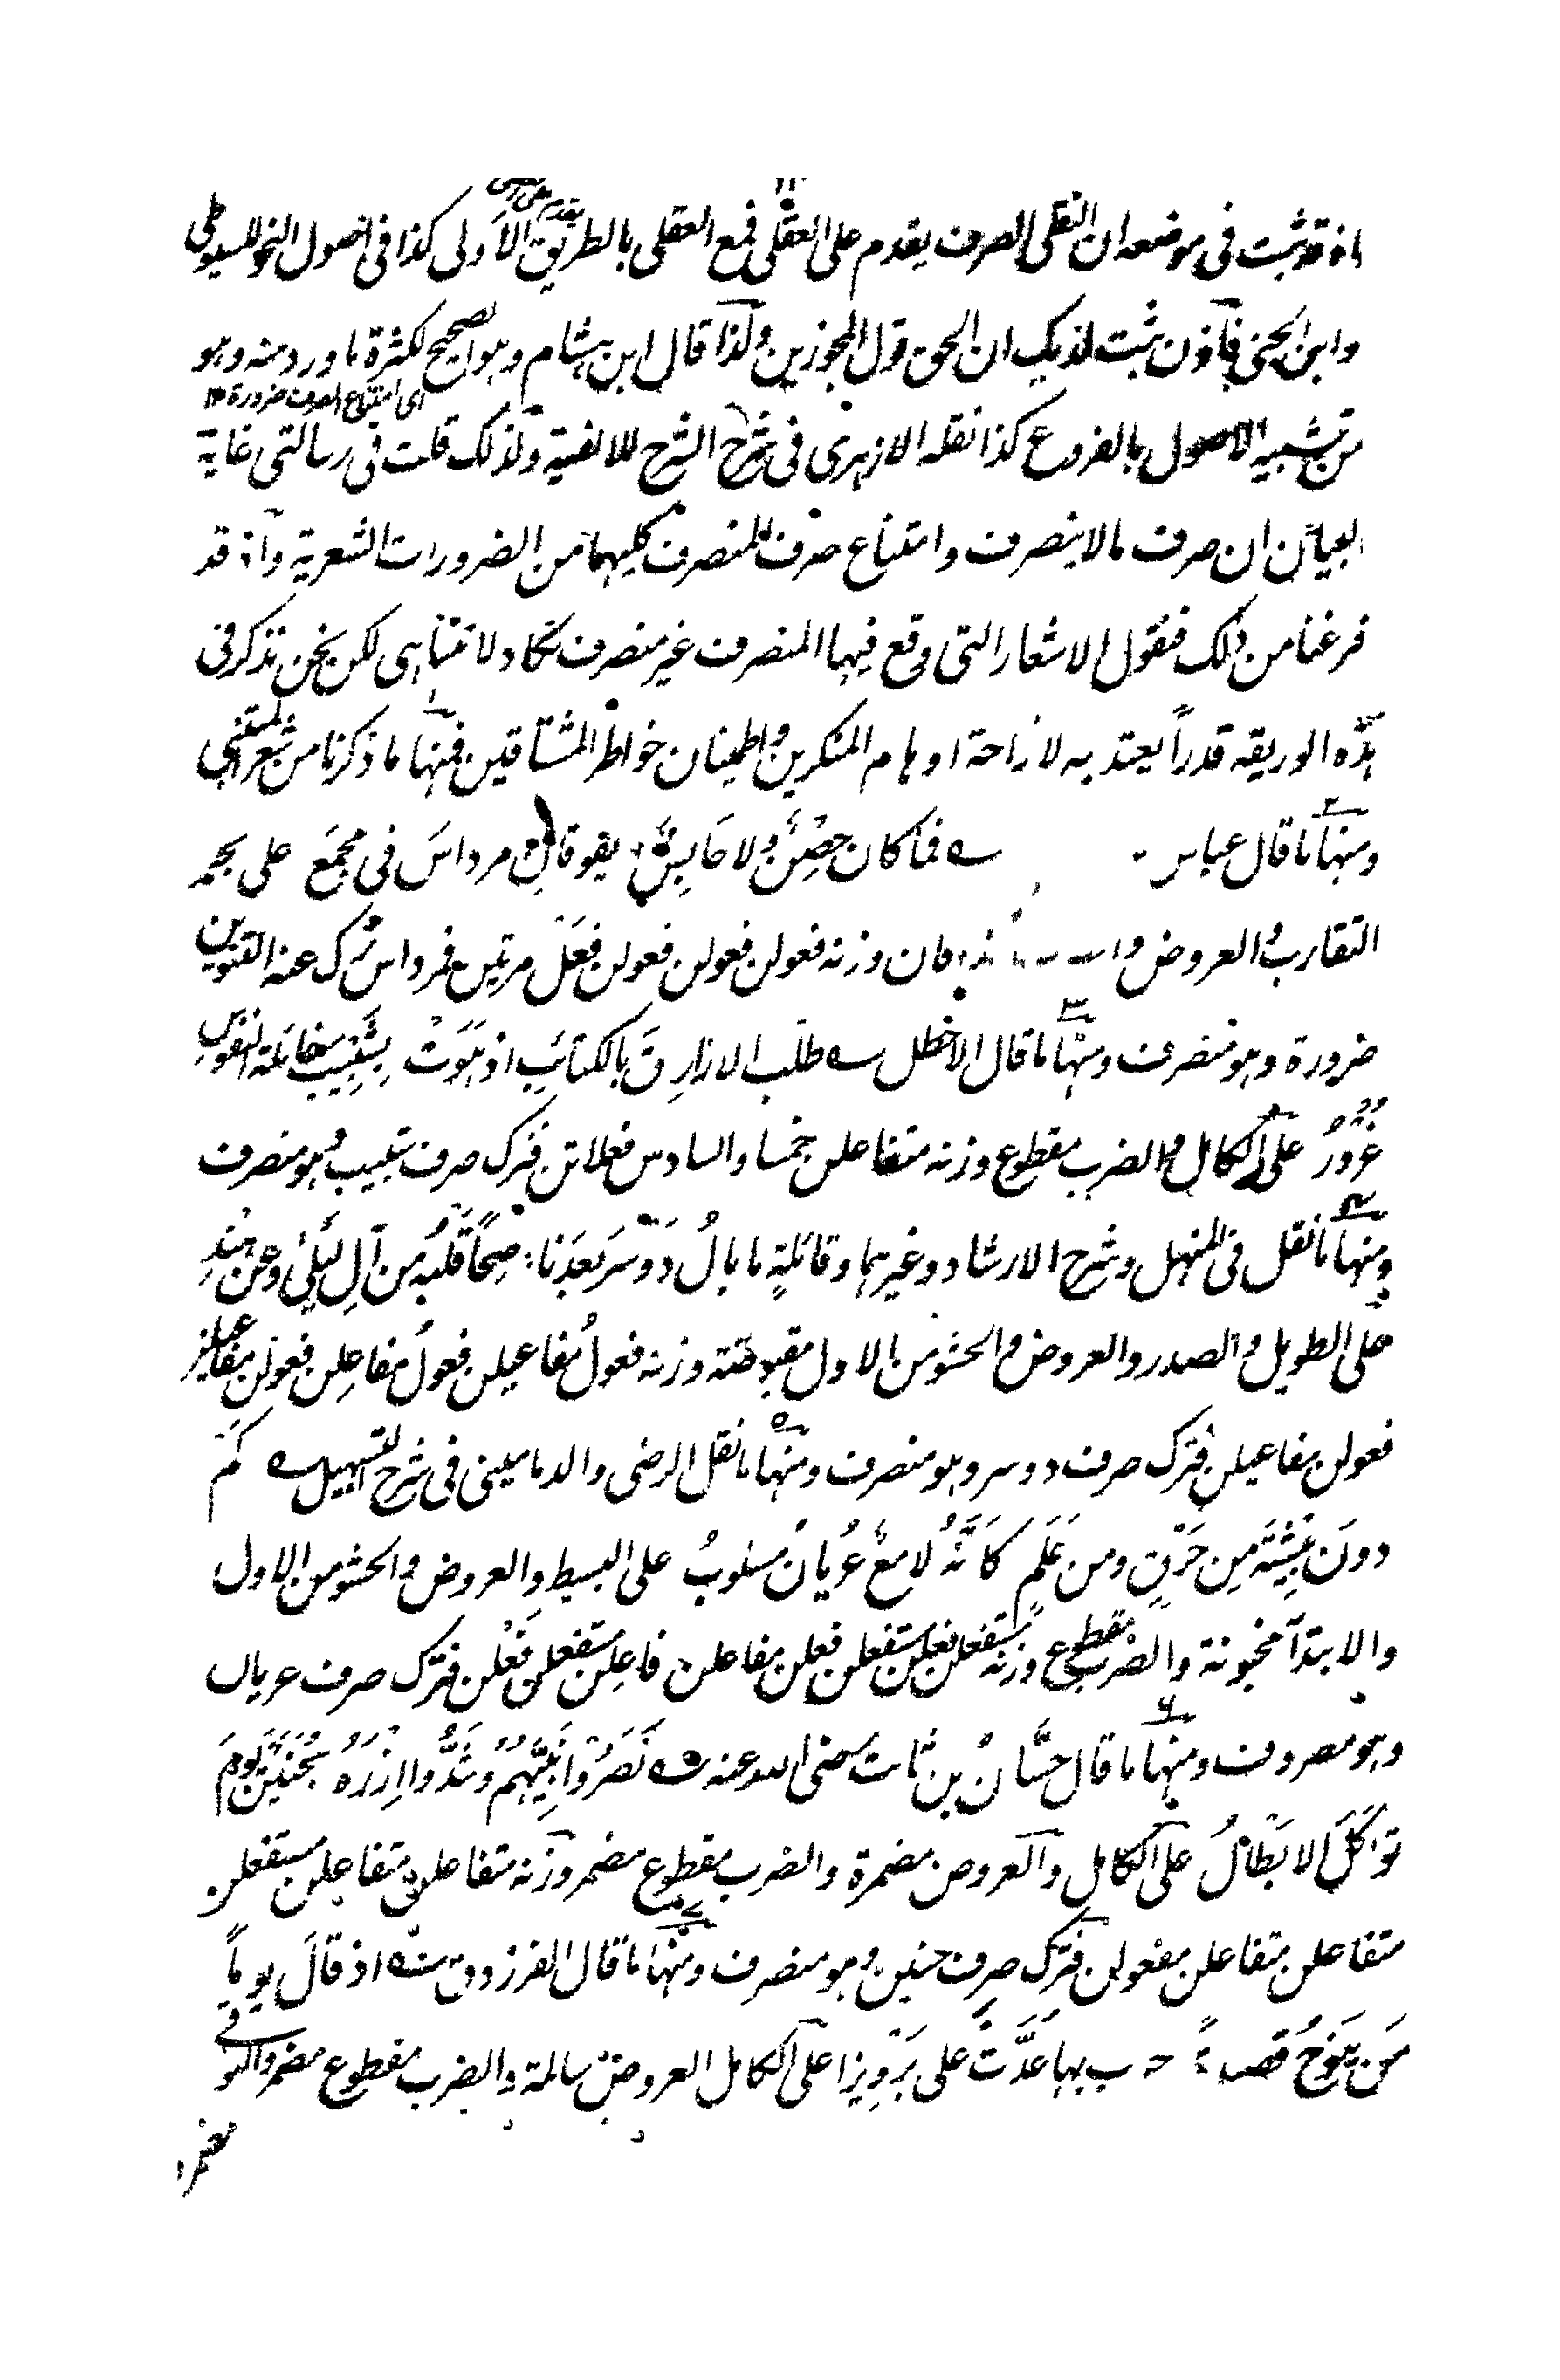 اذ قد ثبت فى موضعه ان النقلى الصرف يقدم على العقلى فمع العقلى بالطريق الاولى كذا فى اصول النحو للسيوطى
وابن الجنى فاذن ثبت لديك ان الحق قول المجوزين ولذا قال ابن هشام وهو الصحيح لكثرة ما ورد منه وهو
اى امتناع الصرف ضرورة ١٢
من تشبيه الاصول بالفروع كذا نقله الازهرى فى شرح الشرح للالفية ولذلك قلت فى رسالتى غاية
البيان ان صرف مالا ينصرف وامتناع صرف المنصرف كليهما من الضرورات الشعرية واذ قد
فرغنا من ذلك فنقول الاشعار التى وقع فيها المنصرف غير منصرف تكاد لا تتناهى لكن نحن نذكر فى
هذه الوريقه قدراً يعتد به لازاحة اوهام المنكرين واطمينان خواطر المشتاقين فمنها ما ذكرنا من شعر المتنبى
ومنها ما قال عباس فما كان حِصْنٌ ولا حَابِسٌ يفوقان مرداسَ فى مجمَع على بحر
التقارب والعروض فان وزنه فعولن فعولن فعولن فعَلْ مرتين فمرداس ترك عنه التنوين
ضرورة وهو منصرف ومنها ما قال الاخطل طلَب الازارِقَ بالكتائبِ اذ هَوَتْ بِشَبِيبَ غائلة النفوسِ
غَرُورُ على الكامل والضرب مقطوع وزنه متفاعلن خمسا والسادس فعلاتن فترك صرف شبيب وهو منصرف
ومنها ما نقل فى المنهل وشرح الارشاد وغيرهما وقائلةٍ ما بالُ دَوْسَرَ بَعدَنا صِحًا قَلْبُه من آلِ لَيْلىٰ وعن هِنْدِ
على الطويل والصدر والعروض والحشو من الاول مقبوضته وزنه فعولُ مفاعيلن فعولُ مفاعِلن فعولن مفاعيلن
فعولن مفاعيلن فترك صرف دوسر وهو منصرف ومنها ما نقل الرضى والدمامينى فى شرح التسهيل كَمْ
دونَ بِيْشَةَ مِن خَرْقٍ ومن عَلَمٍ كَاَنَّهُ لامعٌ عُريانُ مسلوبُ على البسيط والعروض والحشو من الاول
والابتدآ مخبونة والضرب مقطوع وزنه مستفعلن فعلن مستفعلن فعلن مفاعلن فاعلن مستفعلن فَعْلن فترك صرف عريان
وهو مصروف ومنها ما قال حسَّانُ بن ثابت رضى الله عنه نَصَرُوْا نَبِيَّهُم وَشَدُّوا اِزْرَهُ بِحُنَيْنَ يَومَ
تَوَاكُلَ الابْطالُ على الكامل والعروض مضمرة والضرب مقطوع مضمر وزنه متفاعلن متفاعلن مستفعلن
متفاعلن متفاعلن مفعولن فترك صرف حنين وهو منصرف ومنها ما قال الفرزدق اذ قالَ يوماً
مَن تَنُوخُ بها عُدَّتْ على بَرَوْبَرا على الكامل العروض سالمة والضرب مقطوع مضمر والبواقى